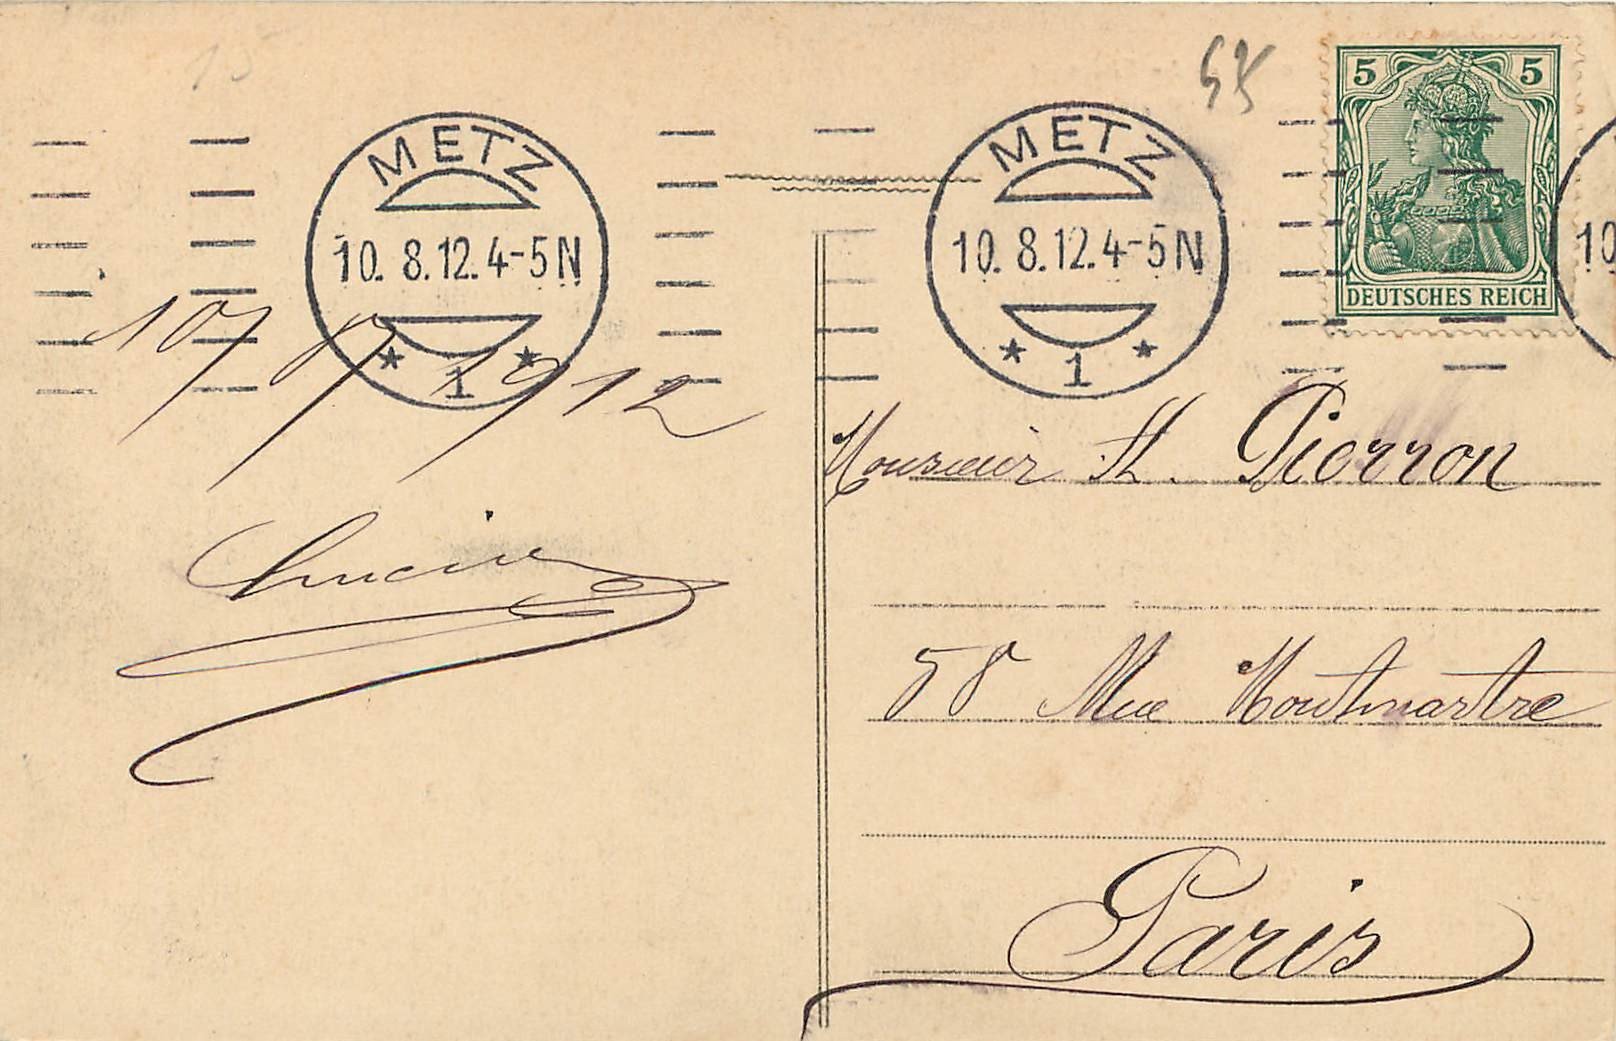 15
METZ
10.8.12.4-5N
* 1 *
METZ
10.8.12.4-5N
* 1 *
5 5
DEUTSCHES REICH
10
10/8/1912
Lucien
Monsieur H. Pierron
58 Rue Montmartre
Paris